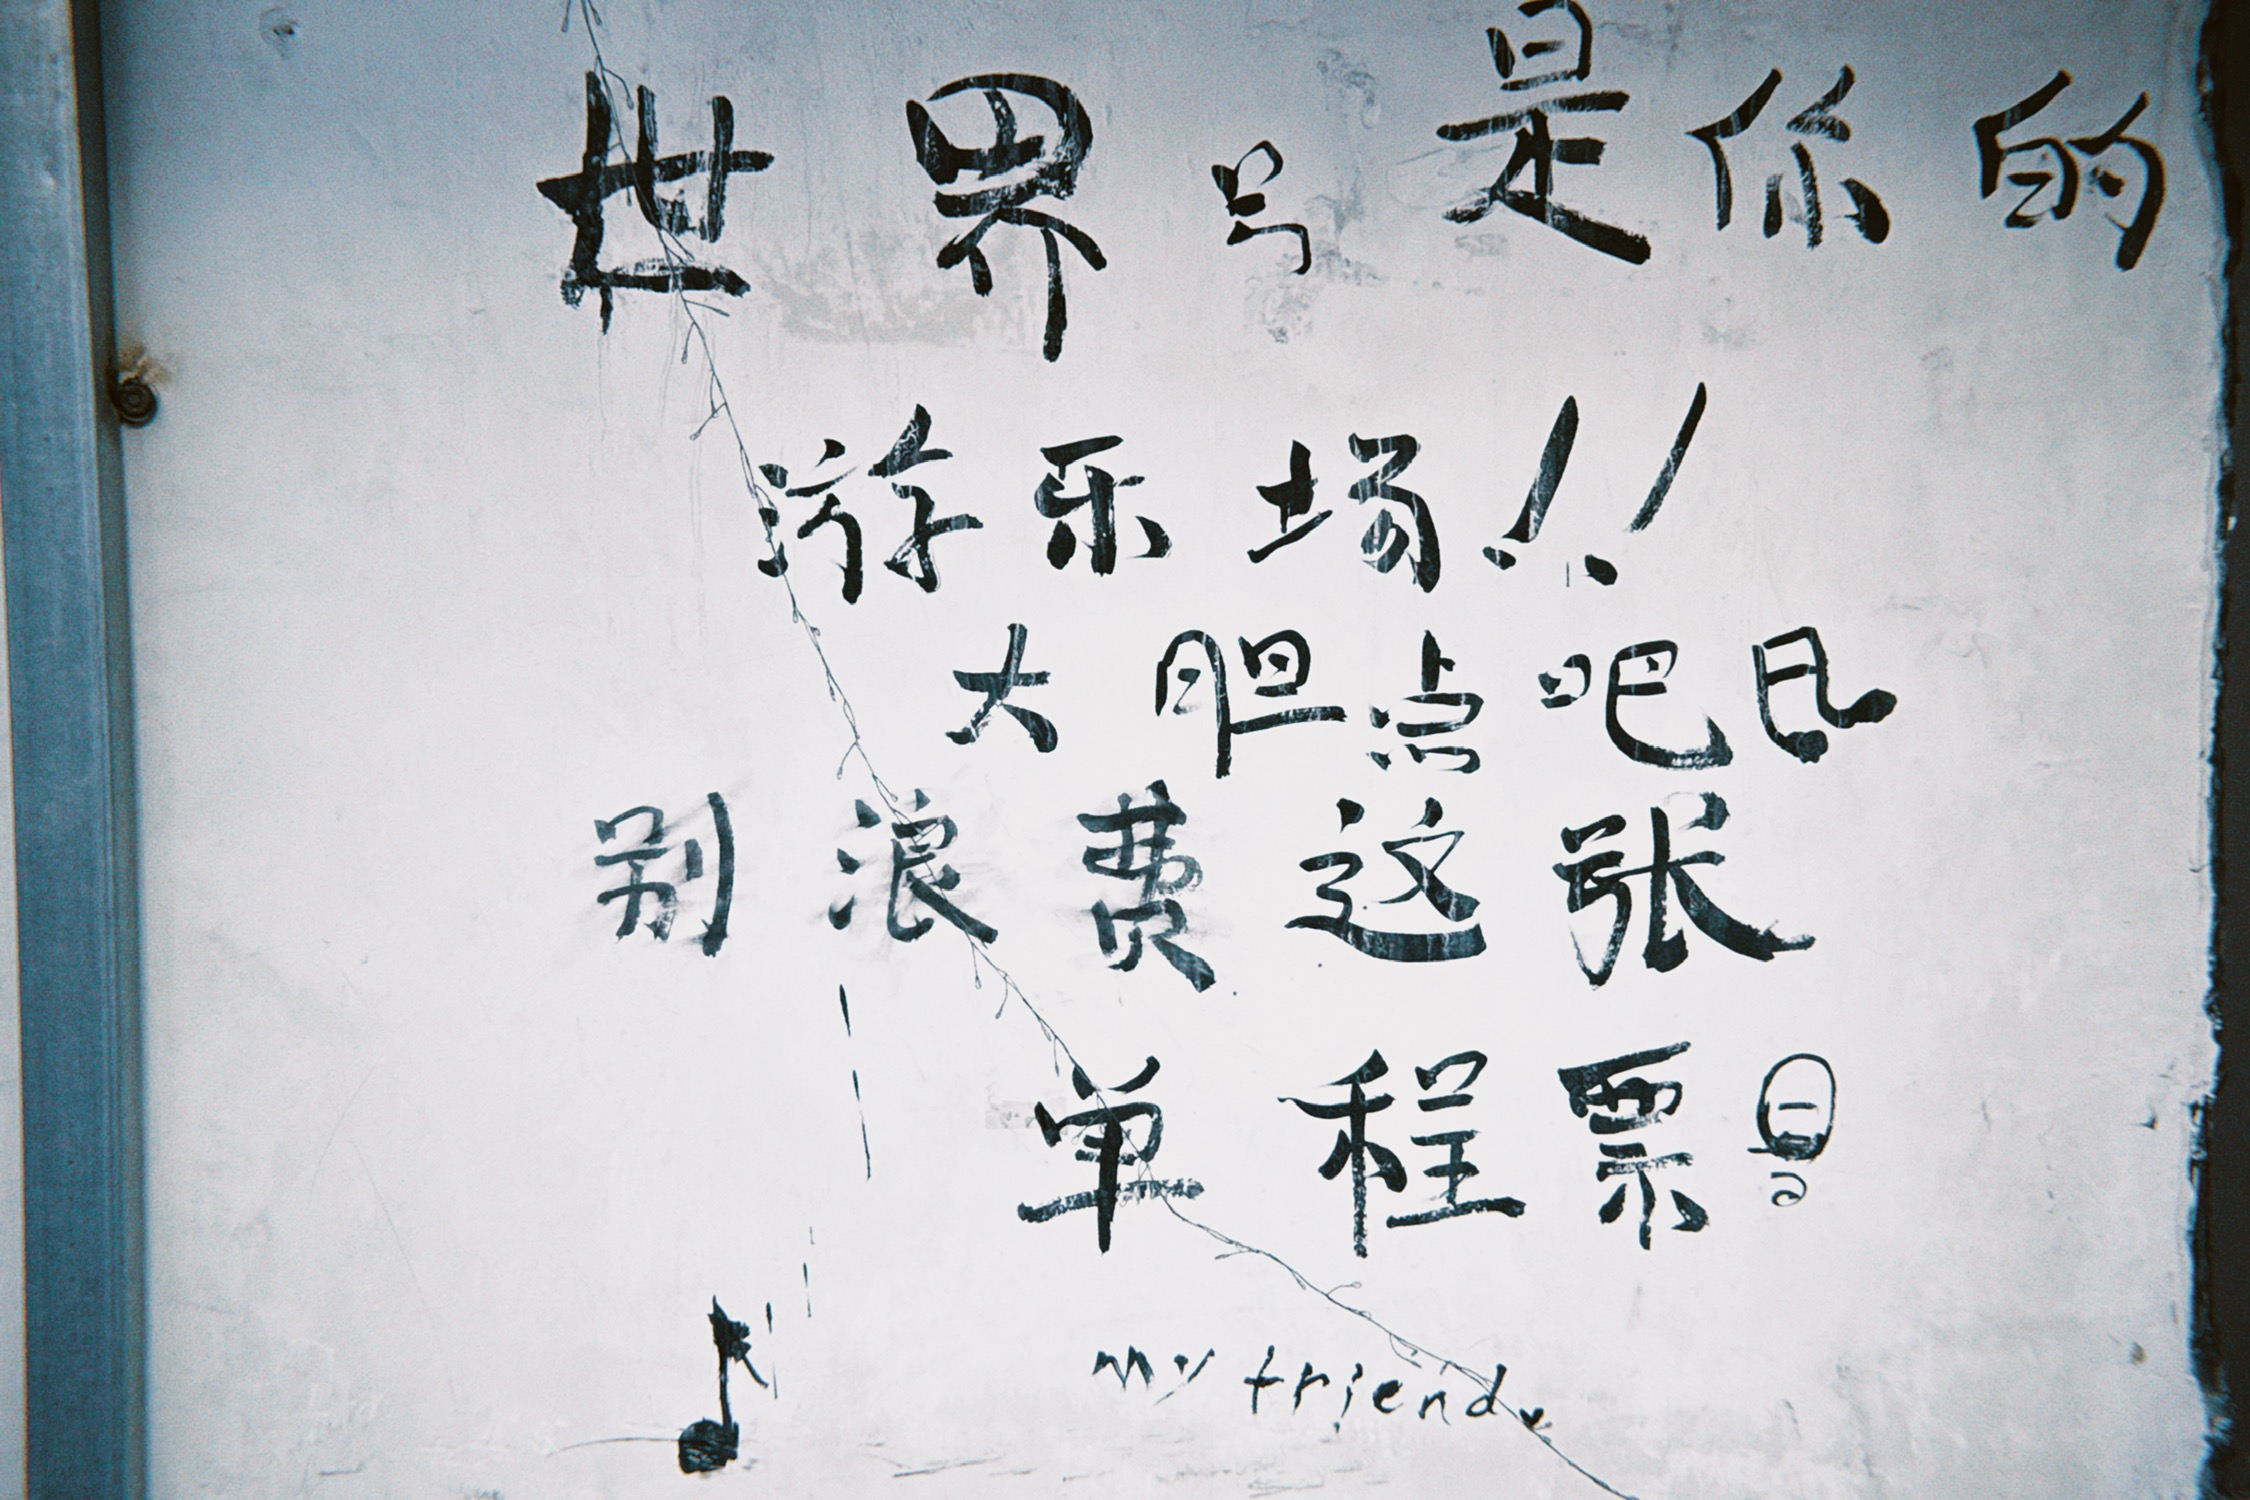 世界是你的
游乐场!!
大胆点吧
别浪费这张
单程票
my friend.